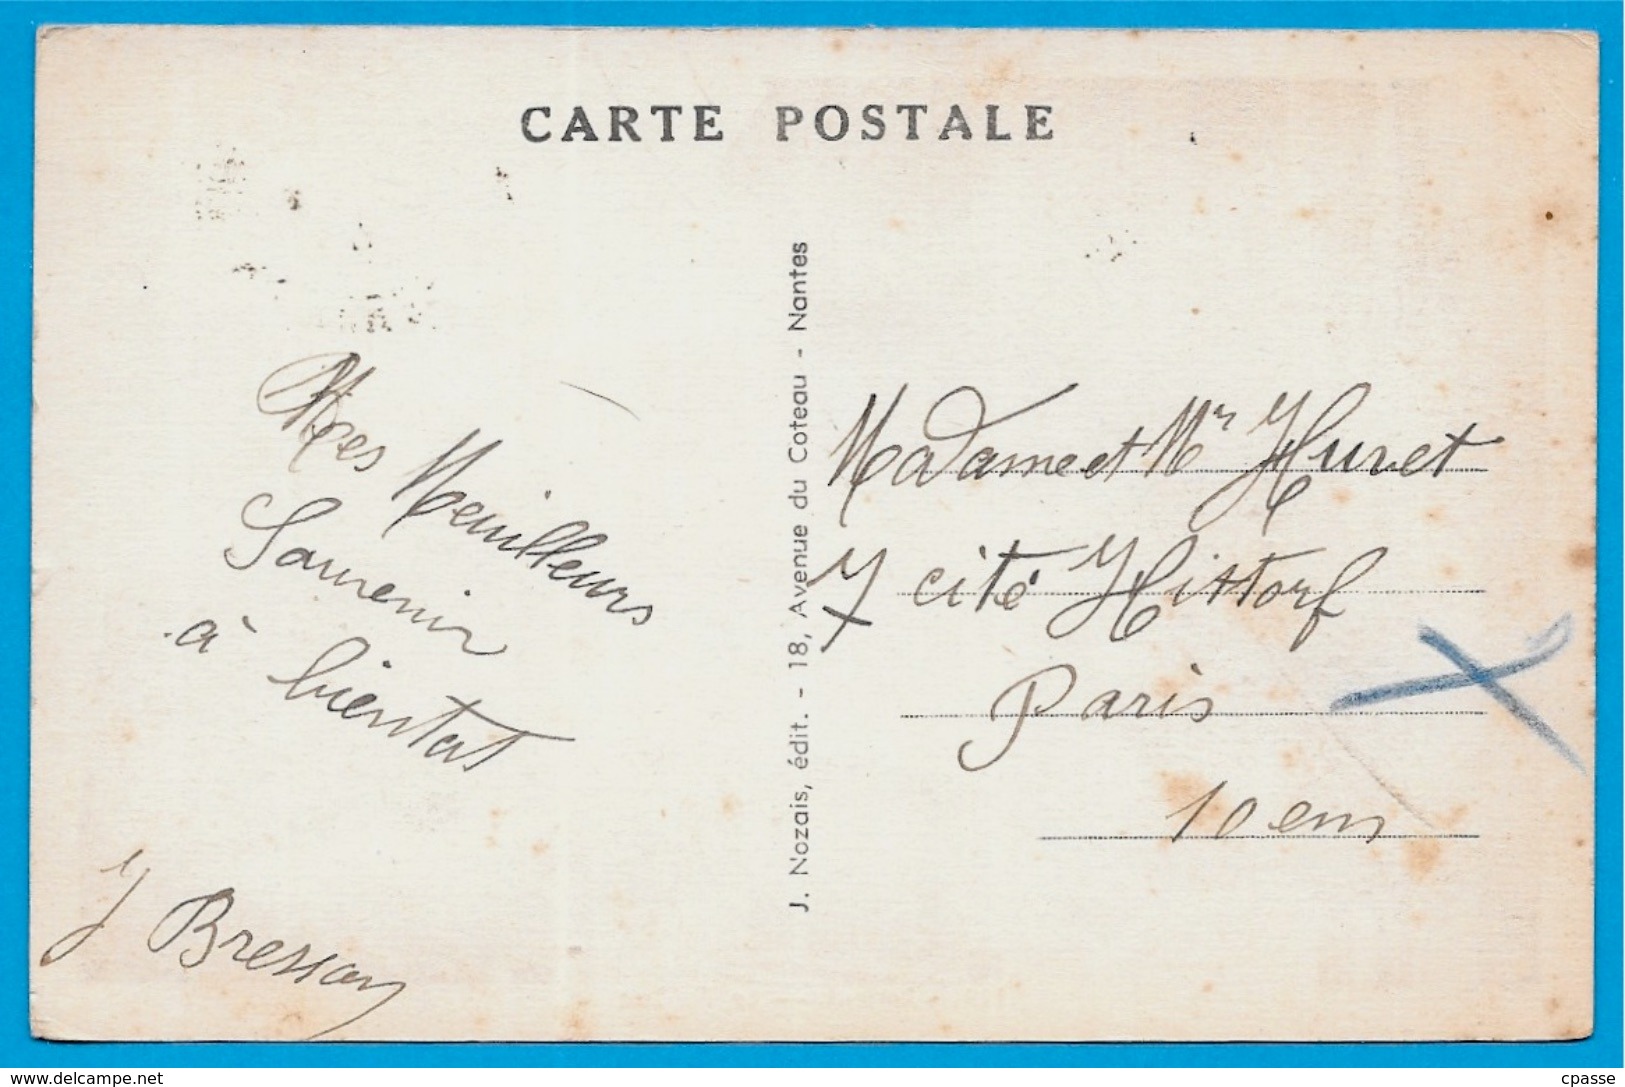 CARTE POSTALE
Mes Meuilleurs
Souvenir
à bientot
J Bresson
J. Nozais, édit. - 18, Avenue du Coteau - Nantes
Madame et Mr Huret
7 cité Hittorf
Paris
10 em
delcampe.net
cpasse